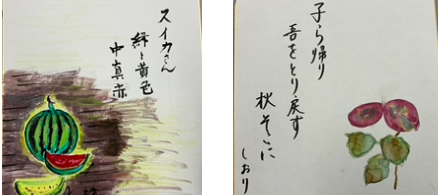 スイカさん
緑と黄色
中真赤
子ら帰り
吾をとり戻す
秋そこに
しおり